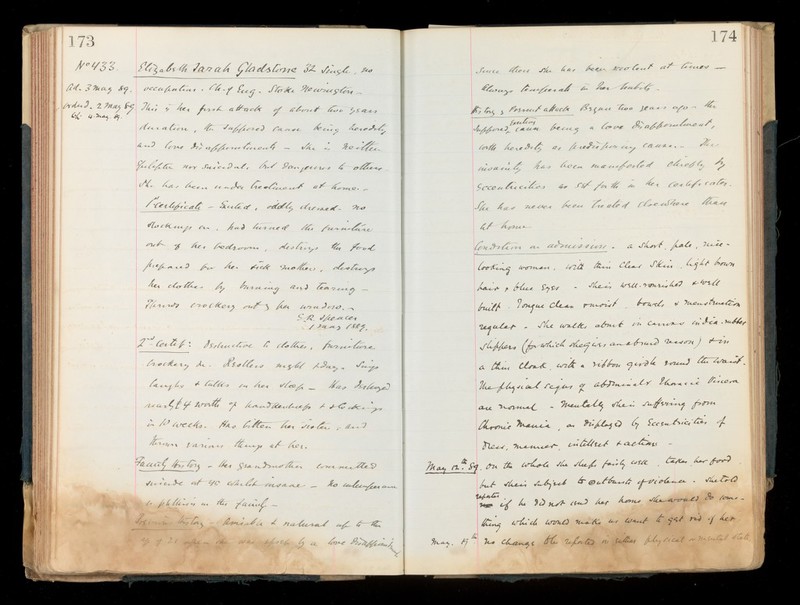 173
No 433
Elizabeth Sarah Gladstone 32 Single. no
Ad. 3 May 89.
occupation. Ch. of Eng. Stoke Newington -
Order d. 2 May 89
This is her first attack of about two years
duration, the supposed cause being heredity
and love disappointments - She is neither
Epileptic nor suicidal, but dangerous to others.
She has been under treatment at home. -
1st certificate - Excited, oddly dressed. no
stockings on, had turned the furniture
out of her bedroom, destroys the food
prepared for her sick mother, destroys
her clothes by burning and tearing -
Throws crockery out of her window. -
Spencer
1 May 1889.
2nd Certif: Destructive to clothes, furniture
crockery &c. Restless night & day. Sings
laughs & talks in her sleep - Has destroyed
nearly £4 worth of handkerchiefs & stockings
in weeks. Has bitten her sister, and
thrown various things at her.
Family History - Her grandmother committed
suicide at 40 whilst insane - No intemperance
or phthisis in the family -
history - & natural up to the
of 21 when she was by a love disappointment
174
Since then she has been violent at times -
Always temperate in her habits.
History of Present attack Began two years ago - the
supposed exciting cause being a love disappointment,
with heredity as predisposing cause. - The
insanity has been manifested chiefly by
eccentricities as set forth in her certificates.
She has never been treated elsewhere than
at home -
Condition on admission. - a short, pale, nice-
looking woman, with thin clear skin, light brown
hair & blue eyes - She is well-nourished & well
built. Tongue clean & moist, bowels & menstruation
regular - She walks about in canvas india-rubber
slippers (for which she gives an absurd reason) & in
a thin cloak, with a ribbon girdle round the waist.
The physical signs of abdominal & thoracic viscera
are normal - Mentally she is suffering from
Chronic Mania, as displayed by eccentricities of
dress, manner, intellect & action -
May 12th 89. On the whole she sleeps fairly well, takes her food
but she is subject to outbursts of violence - She told
if he did not send her home she would do some-
thing which would make us want to get rid of her
May. 19th no change to be reported in either physical or mental state